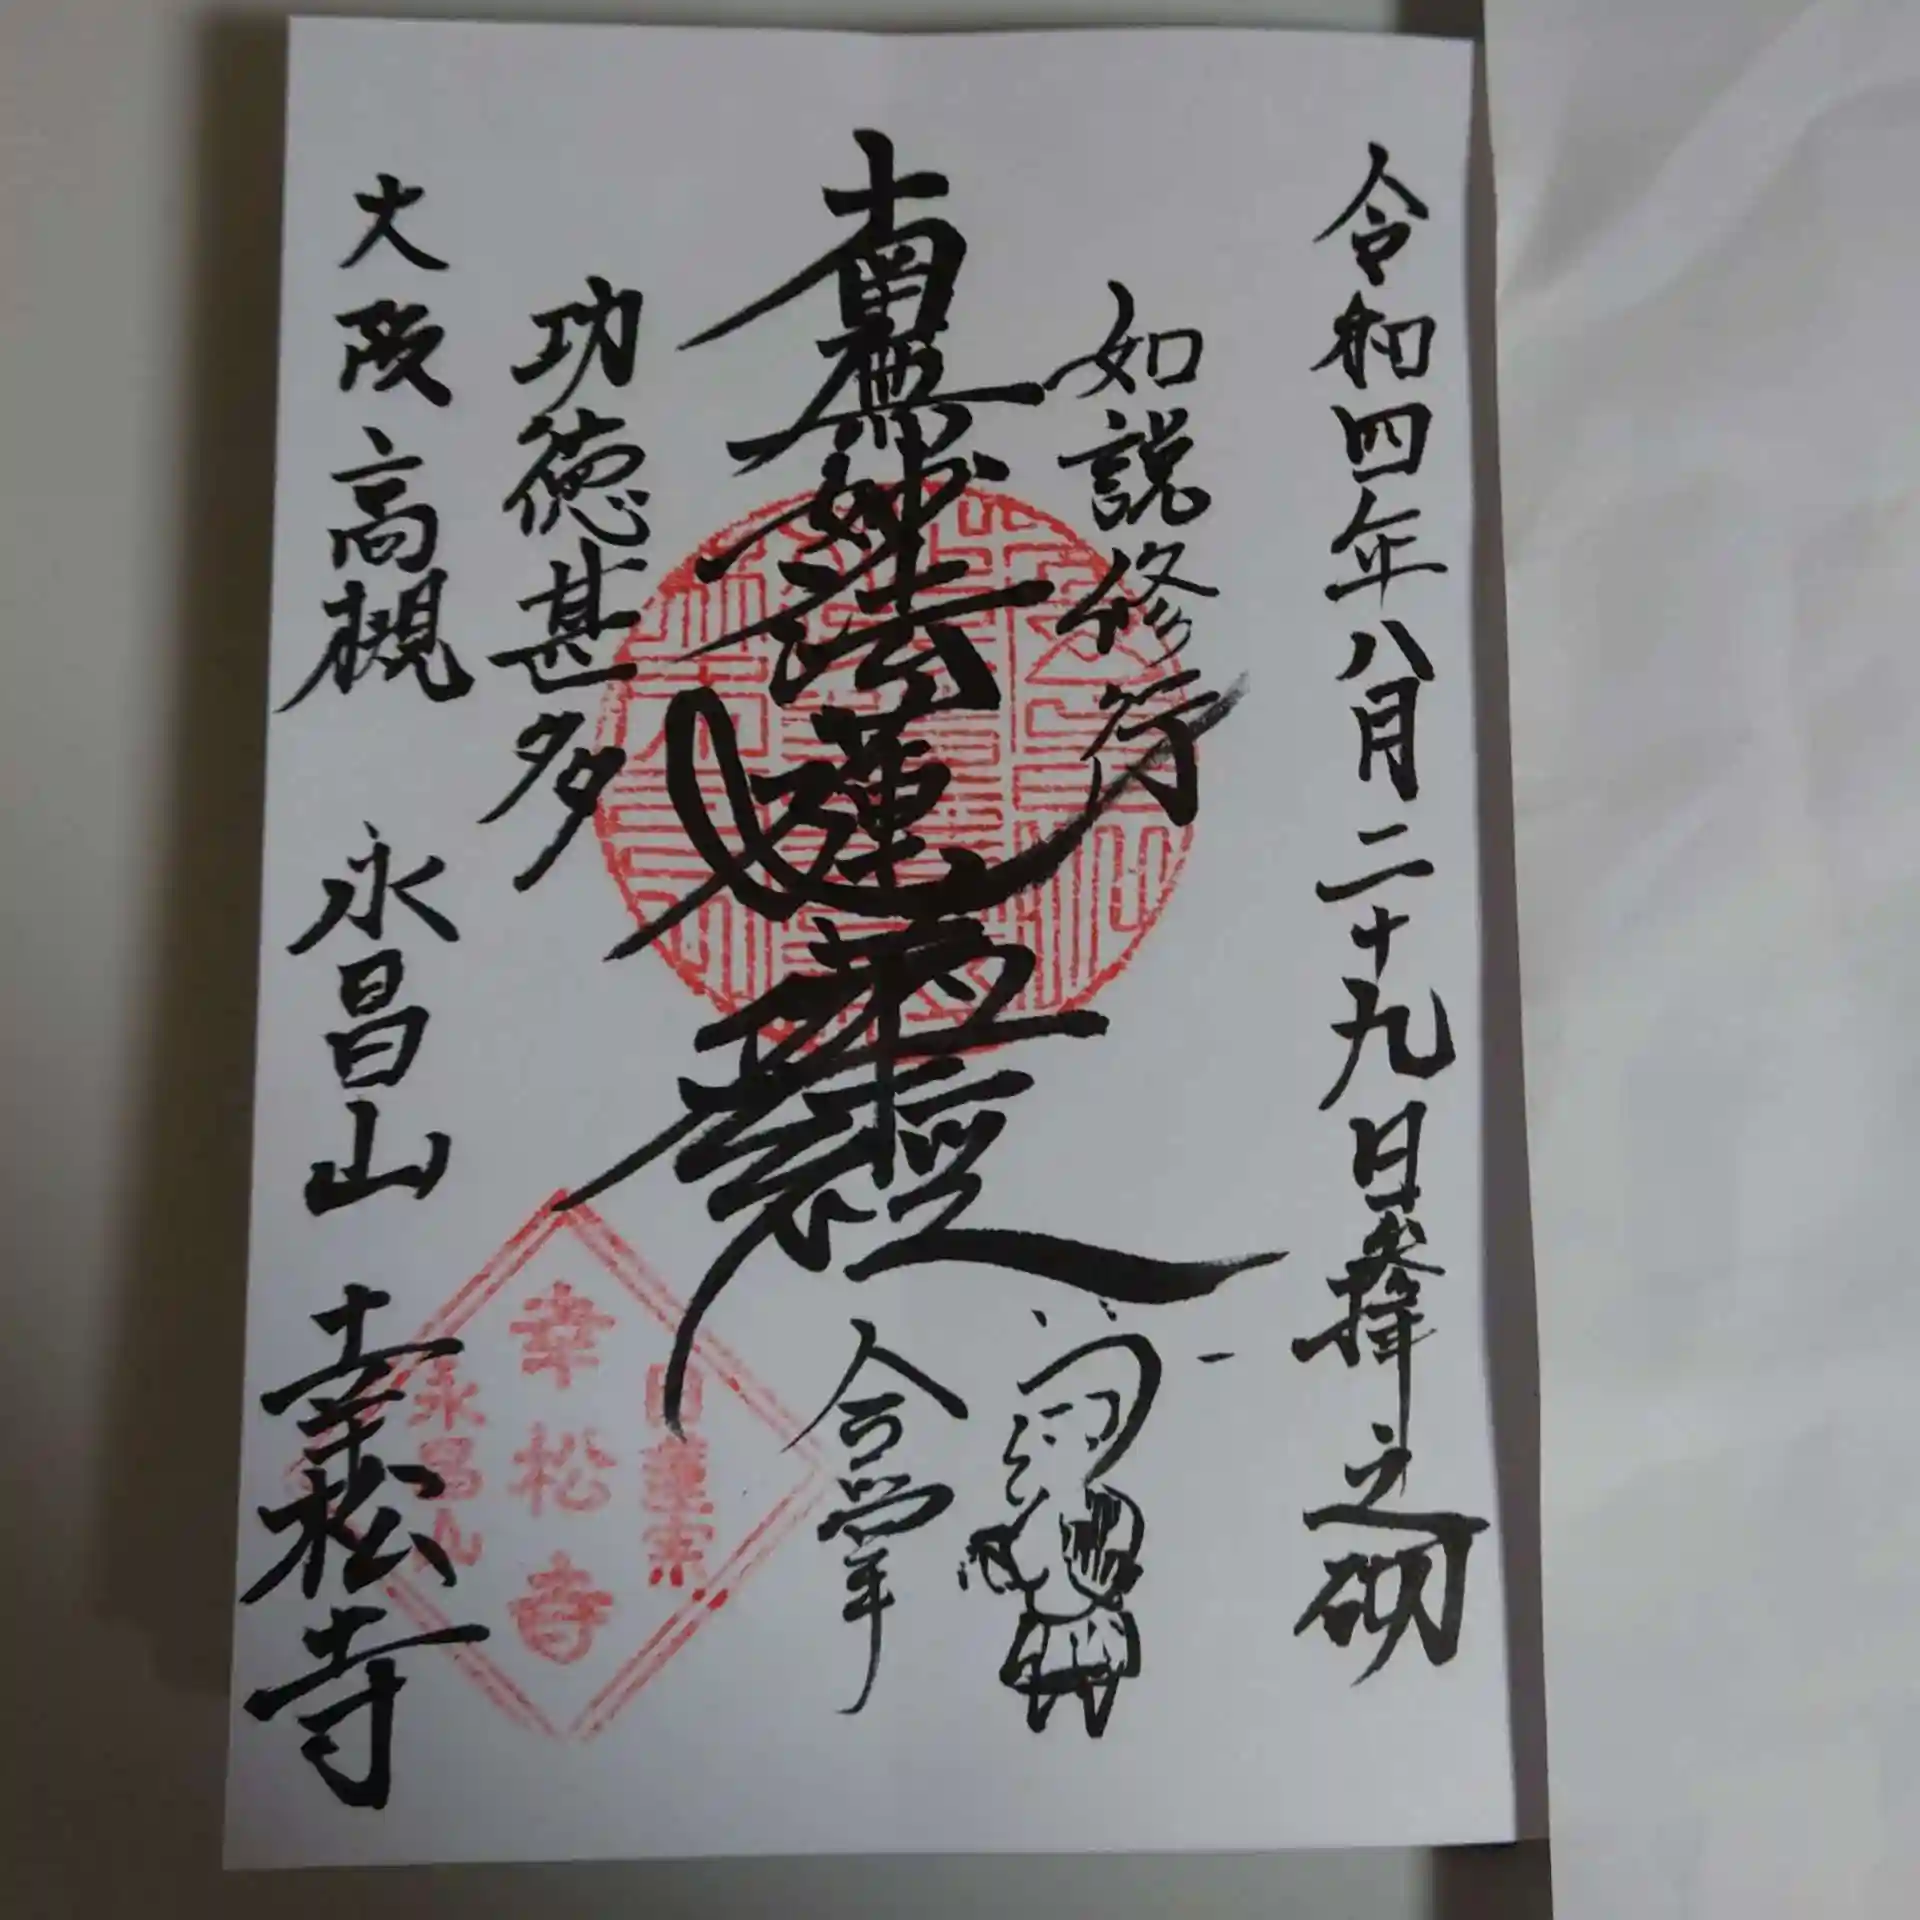 令和四年八月二十九日参拝之砌
如説修行
南無妙法蓮華経
合掌
功徳甚多
大阪高槻 永昌山 幸松寺
日蓮宗
幸松寺
永昌山